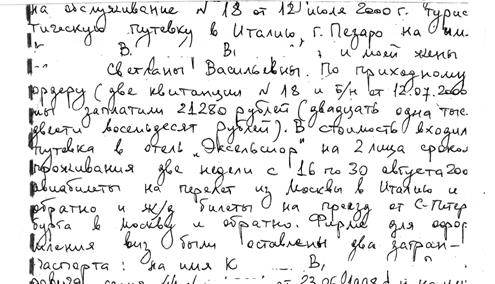 на обслуживание N 18 от 12 июля 2000 г. турис
тическую путевку в Италию г. Пезаро на им
В. В. и моей жены
Светланы Васильевны. По приходному
ордеру (две квитанции N 18 и б/н от 12.07.2000
мы заплатили 21280 рублей (двадцать одна тыс
двести восемьдесят рублей). В стоимость входил
путевка в отель „Эксельсиор" на 2 лица сроком
проживания две недели с 16 по 30 августа 200
авиабилеты на перелет из Москвы в Италию и
обратно и ж/д билеты на проезд от С-Петер
бурга в Москву и обратно. Фирме для офор
мления виз были оставлены два загран-
паспорта: на имя К В.
от 23.06.1998